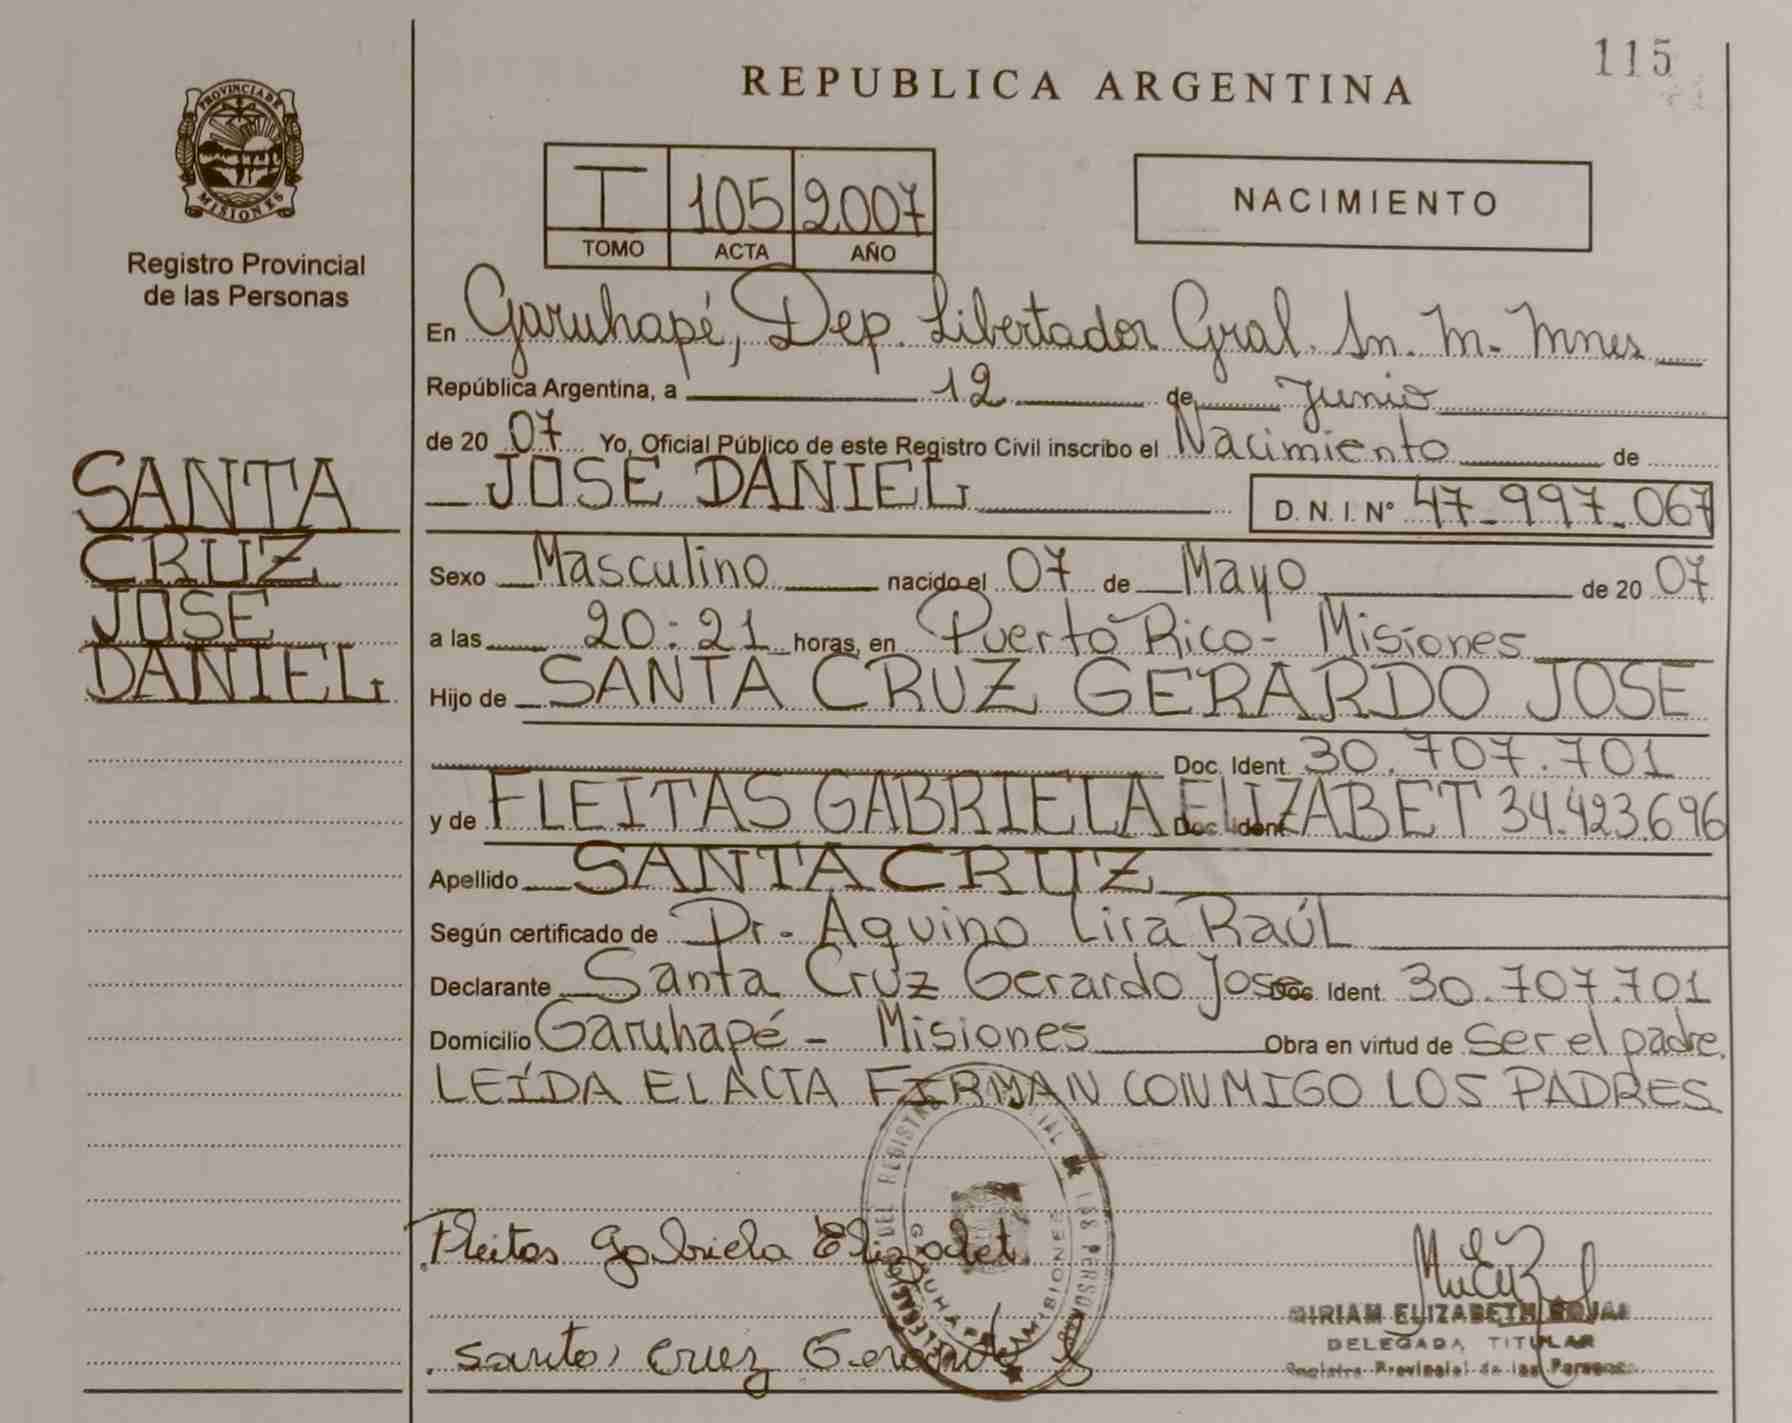 115
REPUBLICA ARGENTINA
PROVINCIA DE
MISIONES
Registro Provincial
de las Personas
I 105 2007
TOMO ACTA AÑO
NACIMIENTO
SANTA
CRUZ
JOSE
DANIEL
En Garuhapé, Dep. Libertador Gral. Sn. M. Mnes
República Argentina, a 12 de Junio
de 20 07 Yo, Oficial Público de este Registro Civil inscribo el Nacimiento de
JOSE DANIEL D. N. I. Nº 47-997-067
Sexo Masculino nacido el 07 de Mayo de 20 07
a las 20:21 horas, en Puerto Rico - Misiones
Hijo de SANTA CRUZ GERARDO JOSE
Doc. Ident. 30.707.701
y de FLEITAS GABRIELA ELIZABET Doc. Ident. 34.423.696
Apellido SANTA CRUZ
Según certificado de Dr. Aquino Lira Raúl
Declarante Santa Cruz Gerardo Jose Doc. Ident. 30.707.701
Domicilio Garuhapé - Misiones Obra en virtud de Ser el padre.
LEÍDA EL ACTA FIRMAN CONMIGO LOS PADRES
Fleitas Gabriela Elizabet
Santa Cruz Gerardo J
MIRIAM ELIZABETH ROJAS
DELEGADA TITULAR
Registro Provincial de las Personas